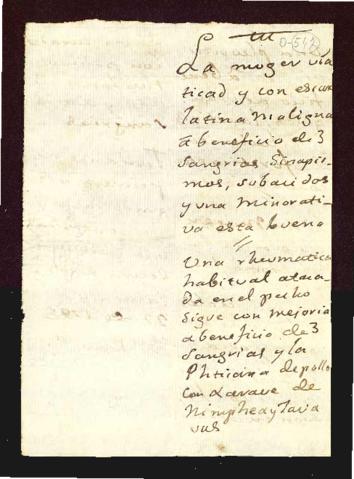 D-542
La muger via
ticad y con escar
latina maligna
a beneficio de 3
sangrias Sinapis
mos, subacidos
y una minorati-
va esta bueno
Una rheumatica
habitual ataca-
da en el pecho
sigue con mejoria
a beneficio de 3
sangrias y la
Phticina de pollo
con Xarave de
Nimphea y
vas